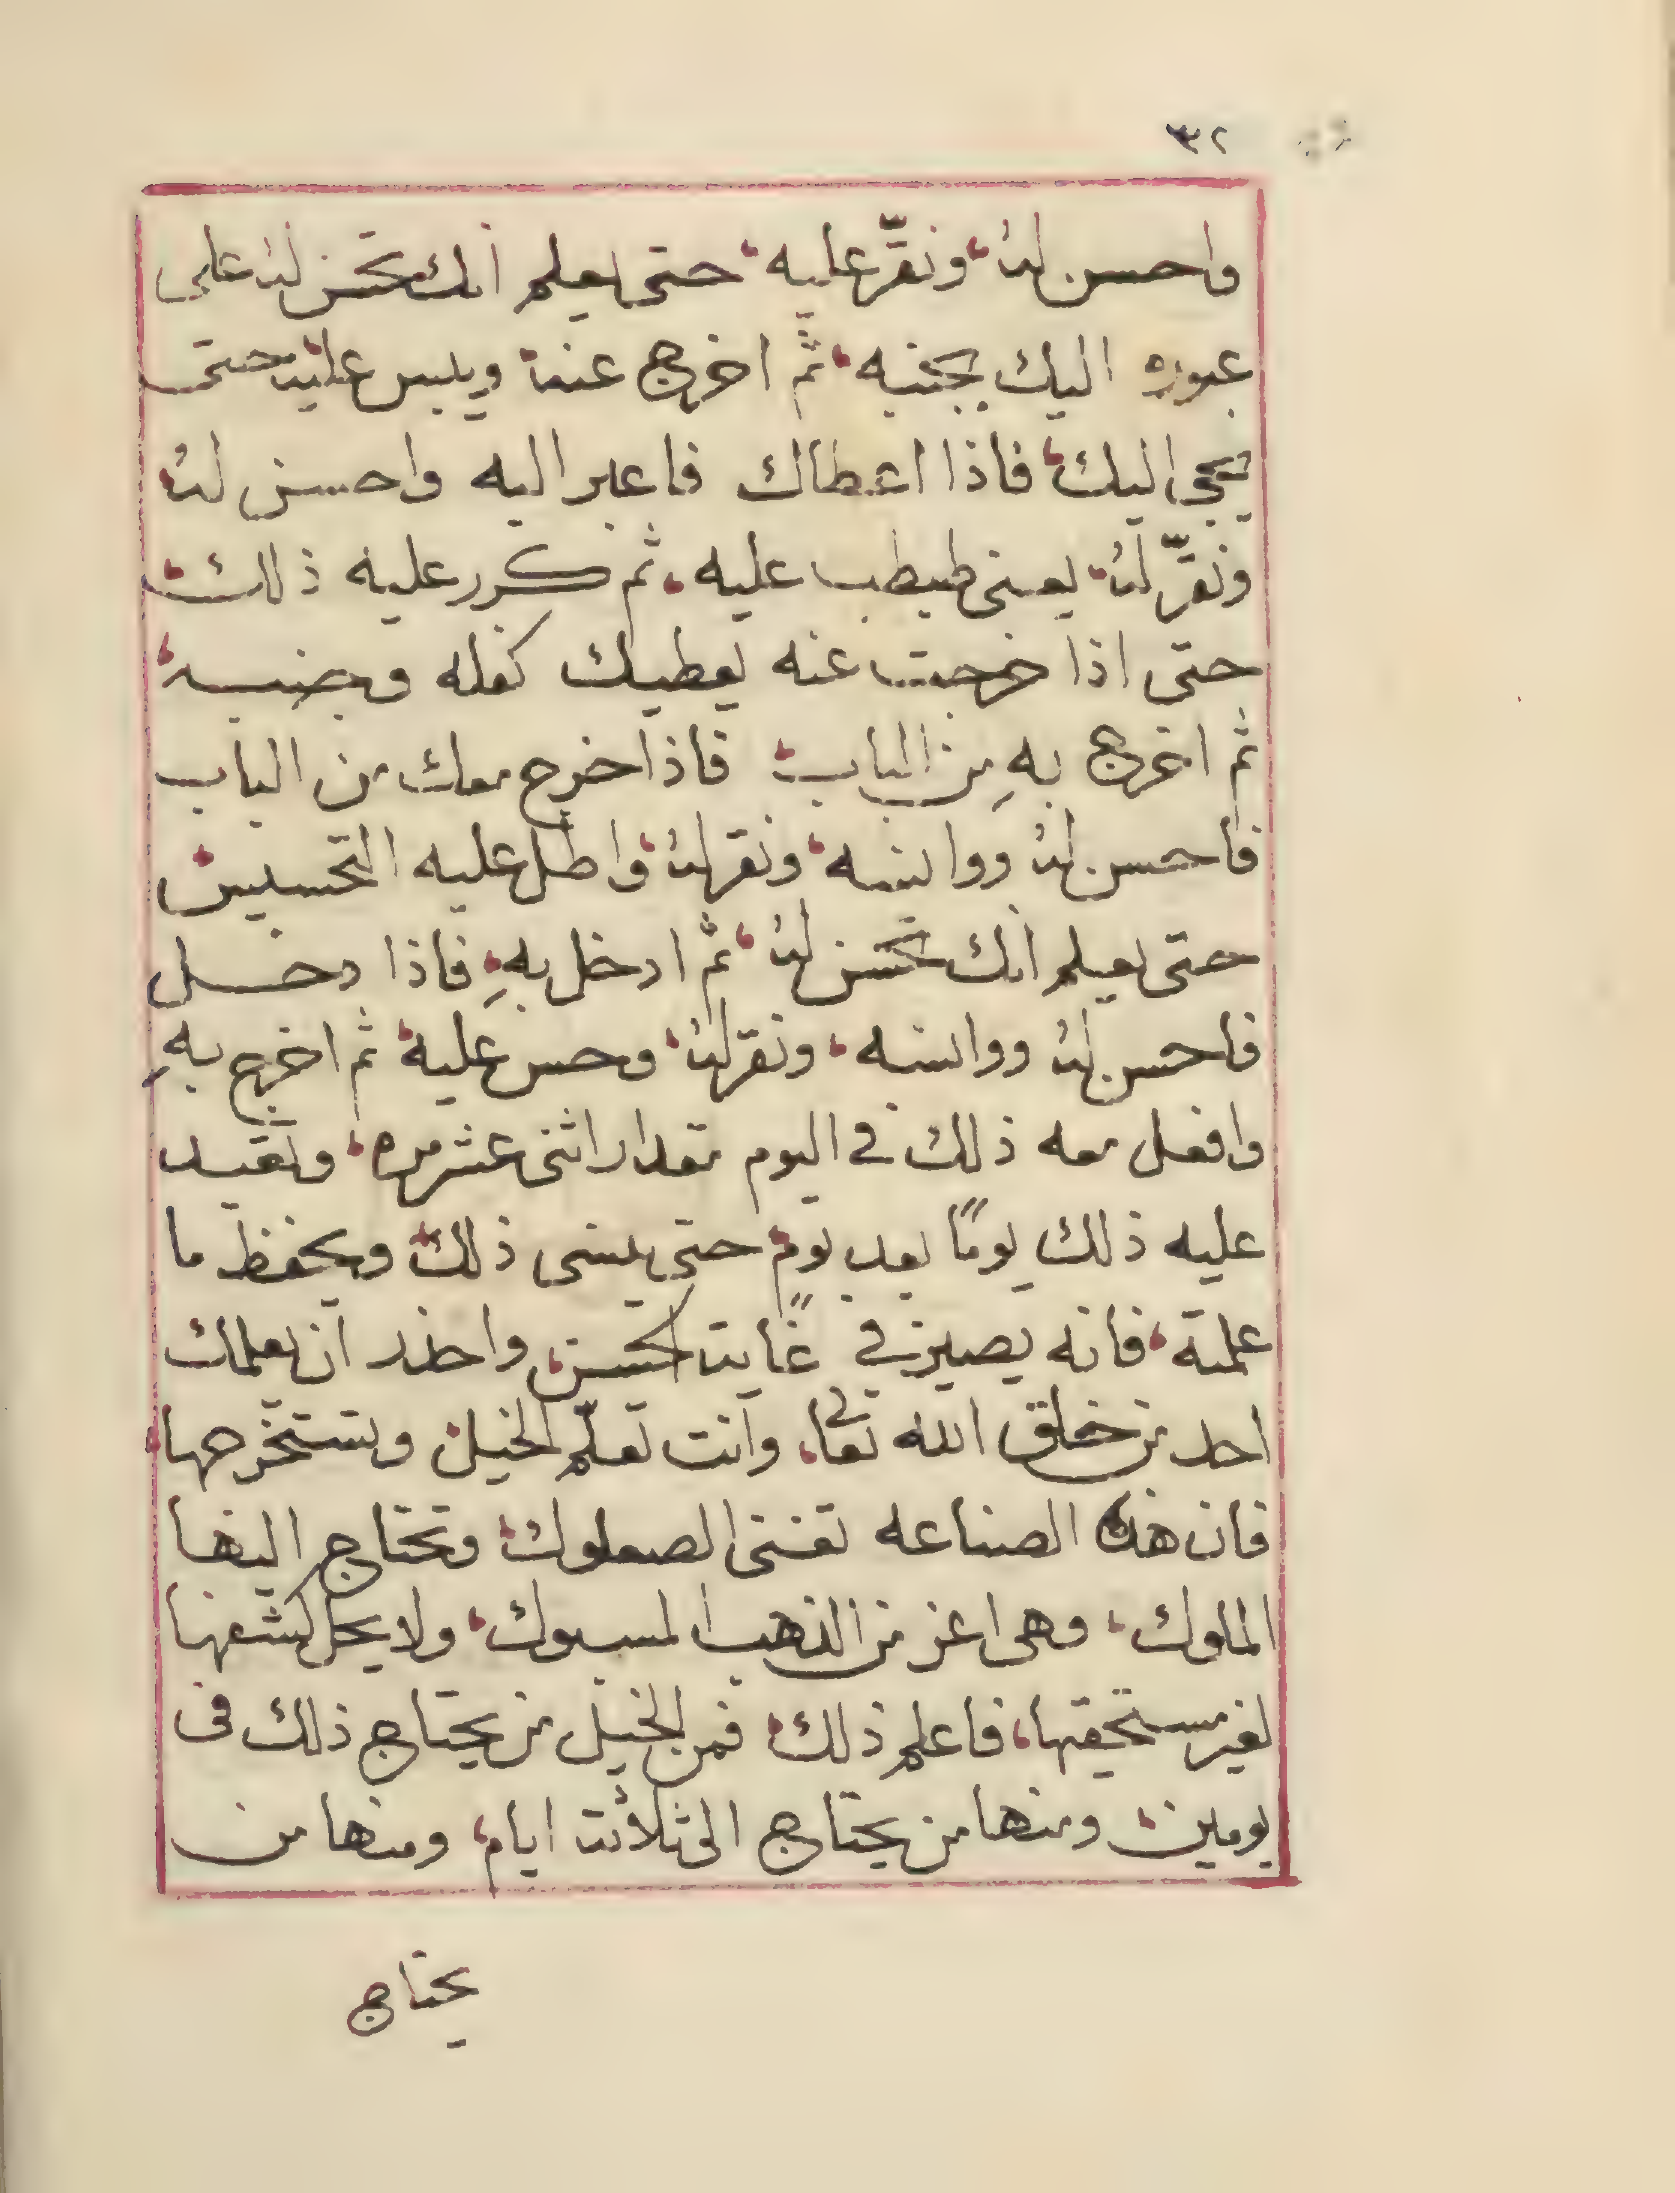 ٣٢
واحسن لهُ، ونقّر عليه، حتى يعلم انك تحسن له على
عبوره اليك بجنبه، ثم اخرج عنه، ويبس عليه حتى
يجى اليك، فاذا اعطاك فاعبر اليه واحسن لهُ
ونقّر لهُ، يعنى طبطب عليه، ثم كرر عليه ذلك،
حتى اذا خرجت عنه يعطيك كفله وجنبه،
ثم اخرج بهِ من الباب، فاذا خرج معك من الباب
فاحسن لهُ ووانسه، ونقر لهُ، واطل عليه التحسيس،
حتى يعلم انك تحسن لهُ، ثم ادخل بهِ، فاذا دخل
فاحسن لهُ ووانسه، ونقر لهُ، وحس عليه، ثم اخرج بهِ
وافعل معه ذلك فى اليوم مقدار اثنى عشر مره، وتقيد
عليه ذلك يومًا بعد يوم، حتى ينسى ذلك، ويحفظ ما
علمته، فانه يصير فى غاية الحسن، واحذر ان يعلمك
احد من خلق الله تعالى، وانت تعلّم الخيل، وتستخرجها،
فان هذه الصناعه تغنى الصعلوك، وتحتاج اليها
الملوك، وهى اعز من الذهب المسبوك، ولا يحل كشفها
لغير مستحقها، فاعلم ذلك، فمن الخيل من يحتاج ذلك فى
يومين، ومنها من يحتاج الى ثلاثة ايام، ومنها من
يحتاج